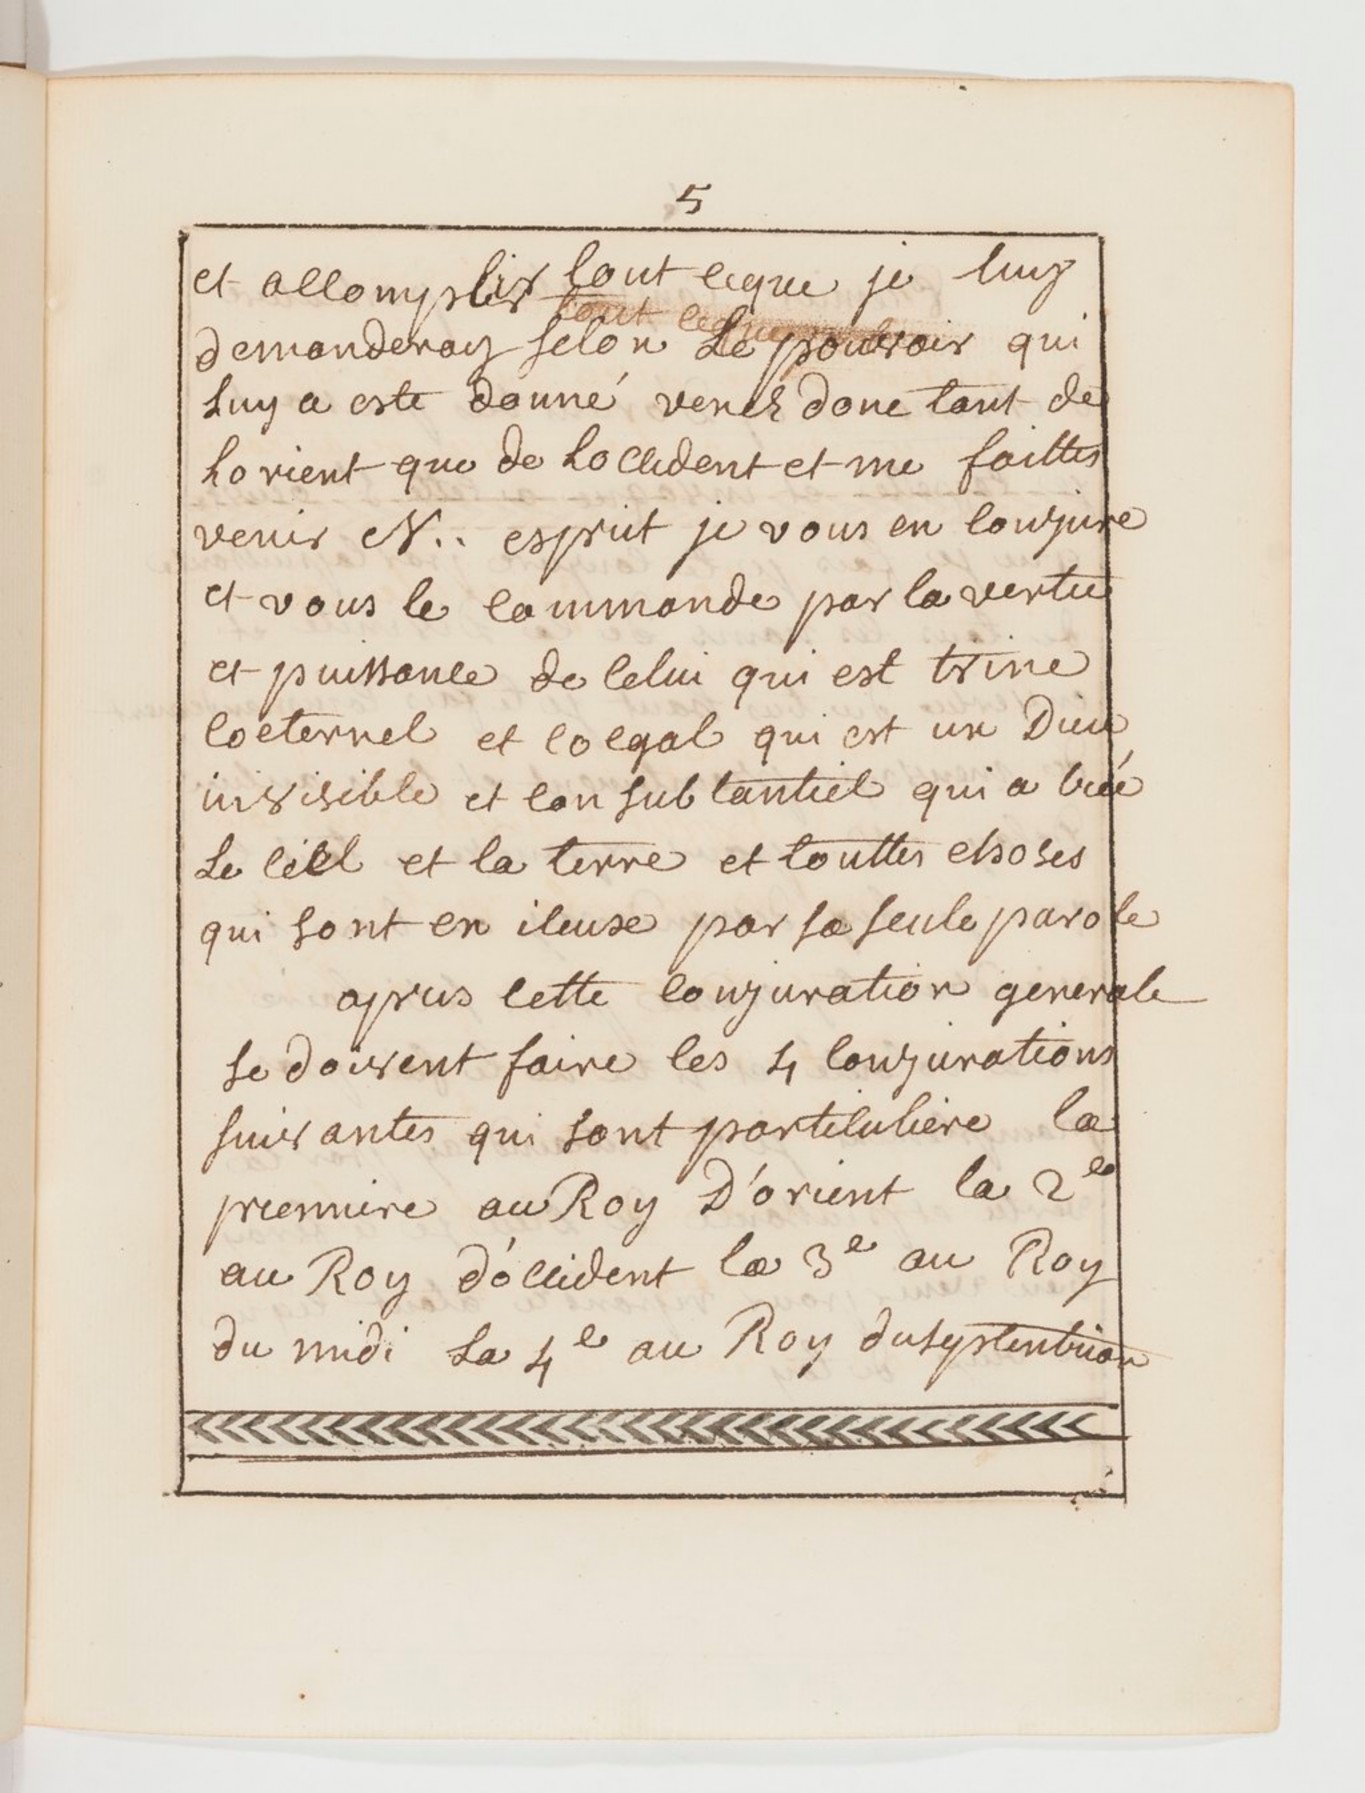 5
et accomplir tout ceque je luy
tout ceque
demanderay selon Le pouvoir qui
Luy a este donné venez donc tant de
Lorient que de Loccident et me faittes
venir N.. esprit je vous en conjure
et vous le commande par la vertu
et puissance de celui qui est trine
coeternel et coegal qui est un Dieu
invisible et consubtantiel qui a créé
Le ciel et la terre et touttes choses
qui sont en iceuse par sa seule parole
apres cette conjuration generale
se doivent faire les 4 conjurations
suivantes qui sont particuliere la
premiere au Roy D'orient la 2e
au Roy d'occident la 3e au Roy
du midi La 4e au Roy duseptentrion